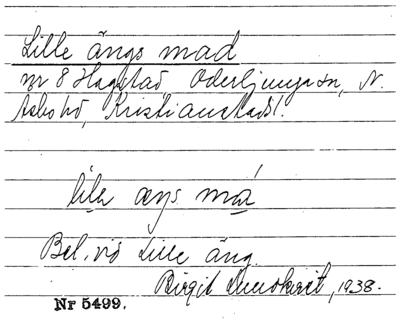 Lille ängs mad
nr 8 Hagstad, Oderljunga sn, N.
Åsbo hd, Kristianstads l.
lilə æŋs má
Bel. vid Lille äng.
Birgit 1938.
Nr 5499.